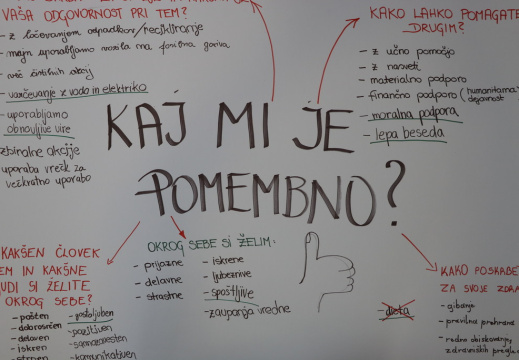 VAŠA ODGOVORNOST PRI TEM?
- z ločevanjem odpadkov/recikliranje
- manj uporabljamo vozila na fosilna goriva
- več čistilnih akcij
- varčevanje z vodo in elektriko
- uporabljamo
obnovljive vire
zbiralne akcije
uporaba vrečk za
večkratno uporabo
KAKO LAHKO POMAGATE
DRUGIM?
- z učno pomočjo
- z nasveti
- materialno podporo
- finančno podporo (humanitarna
dejavnost
- moralna podpora
- lepa beseda
KAJ MI JE
POMEMBNO?
OKROG SEBE SI ŽELIM:
- prijazne
- delavne
- strastne
- iskrene
- ljubeznive
- spoštljive
- zaupanja vredne
KAKŠEN ČLOVEK
EM IN KAKŠNE
UDI SI ŽELITE
OKROG SEBE?
- pošten
- dobrosrčen
- delaven
- iskren
- gostoljuben
- pozitiven
- samozavesten
- komunikativen
KAKO POSKRBE
ZA SVOJE ZDRA
dieta
- gibanje
- pravilna prehrana
- redno obiskovanje
zdravniških pregle